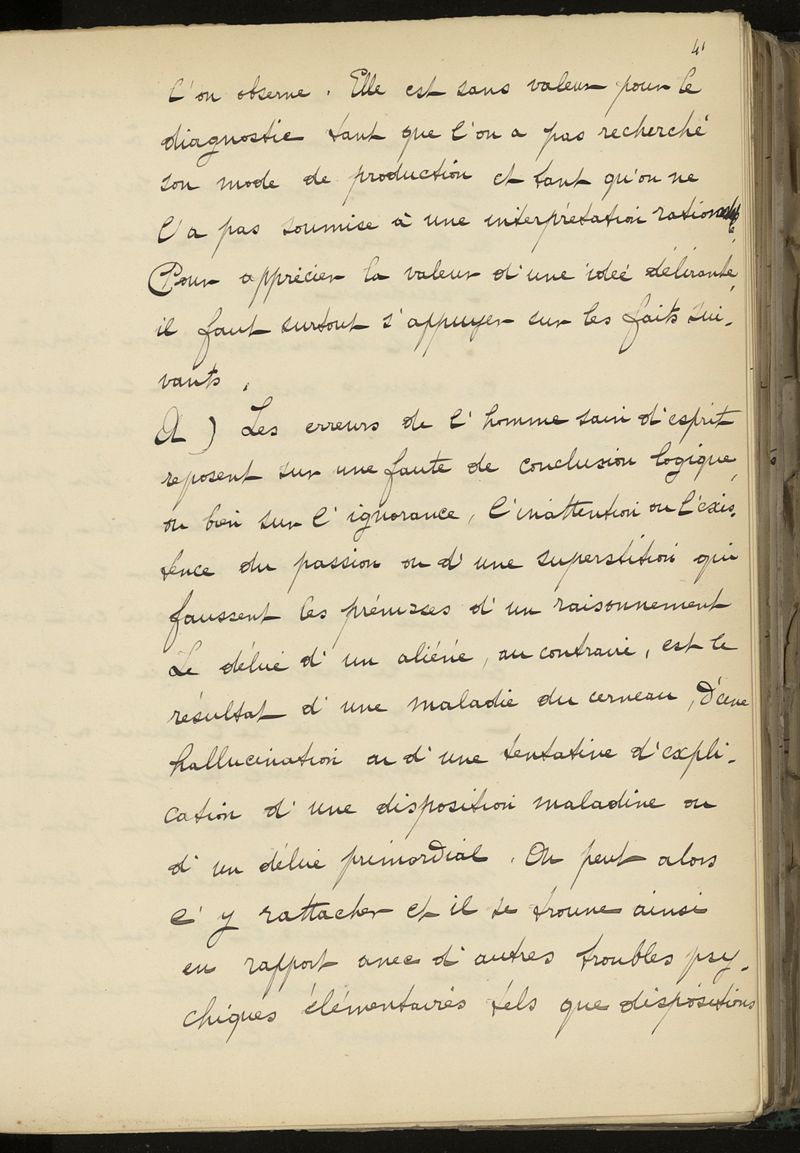 41
l'on observe. Elle est sans valeur pour le
diagnostic tant que l'on a pas recherché
son mode de production et tant qu'on ne
l'a pas soumise à une interprétation rationnelle.
Pour apprécier la valeur d'une ideé délirante,
il faut surtout s'appuyer sur les faits sui-
vants.
A) Les erreurs de l'homme sain d'esprit
reposent sur une faute de conclusion logique,
ou bien sur l'ignorance, l'inattention ou l'exis-
tence du passion ou d'une superstition qui
faussent les prémisses d'un raisonnement
Le délire d'un aliéné, au contraire, est le
résultat d'une maladie du cerveau, d'une
hallucination ou d'une tentative d'expli-
cation d'une disposition maladive ou
d'un délire primordial. On peut alors
l'y rattacher et il se trouve ainsi
en rapport avec d'autres troubles psy-
chiques élémentaires tels que dispositions